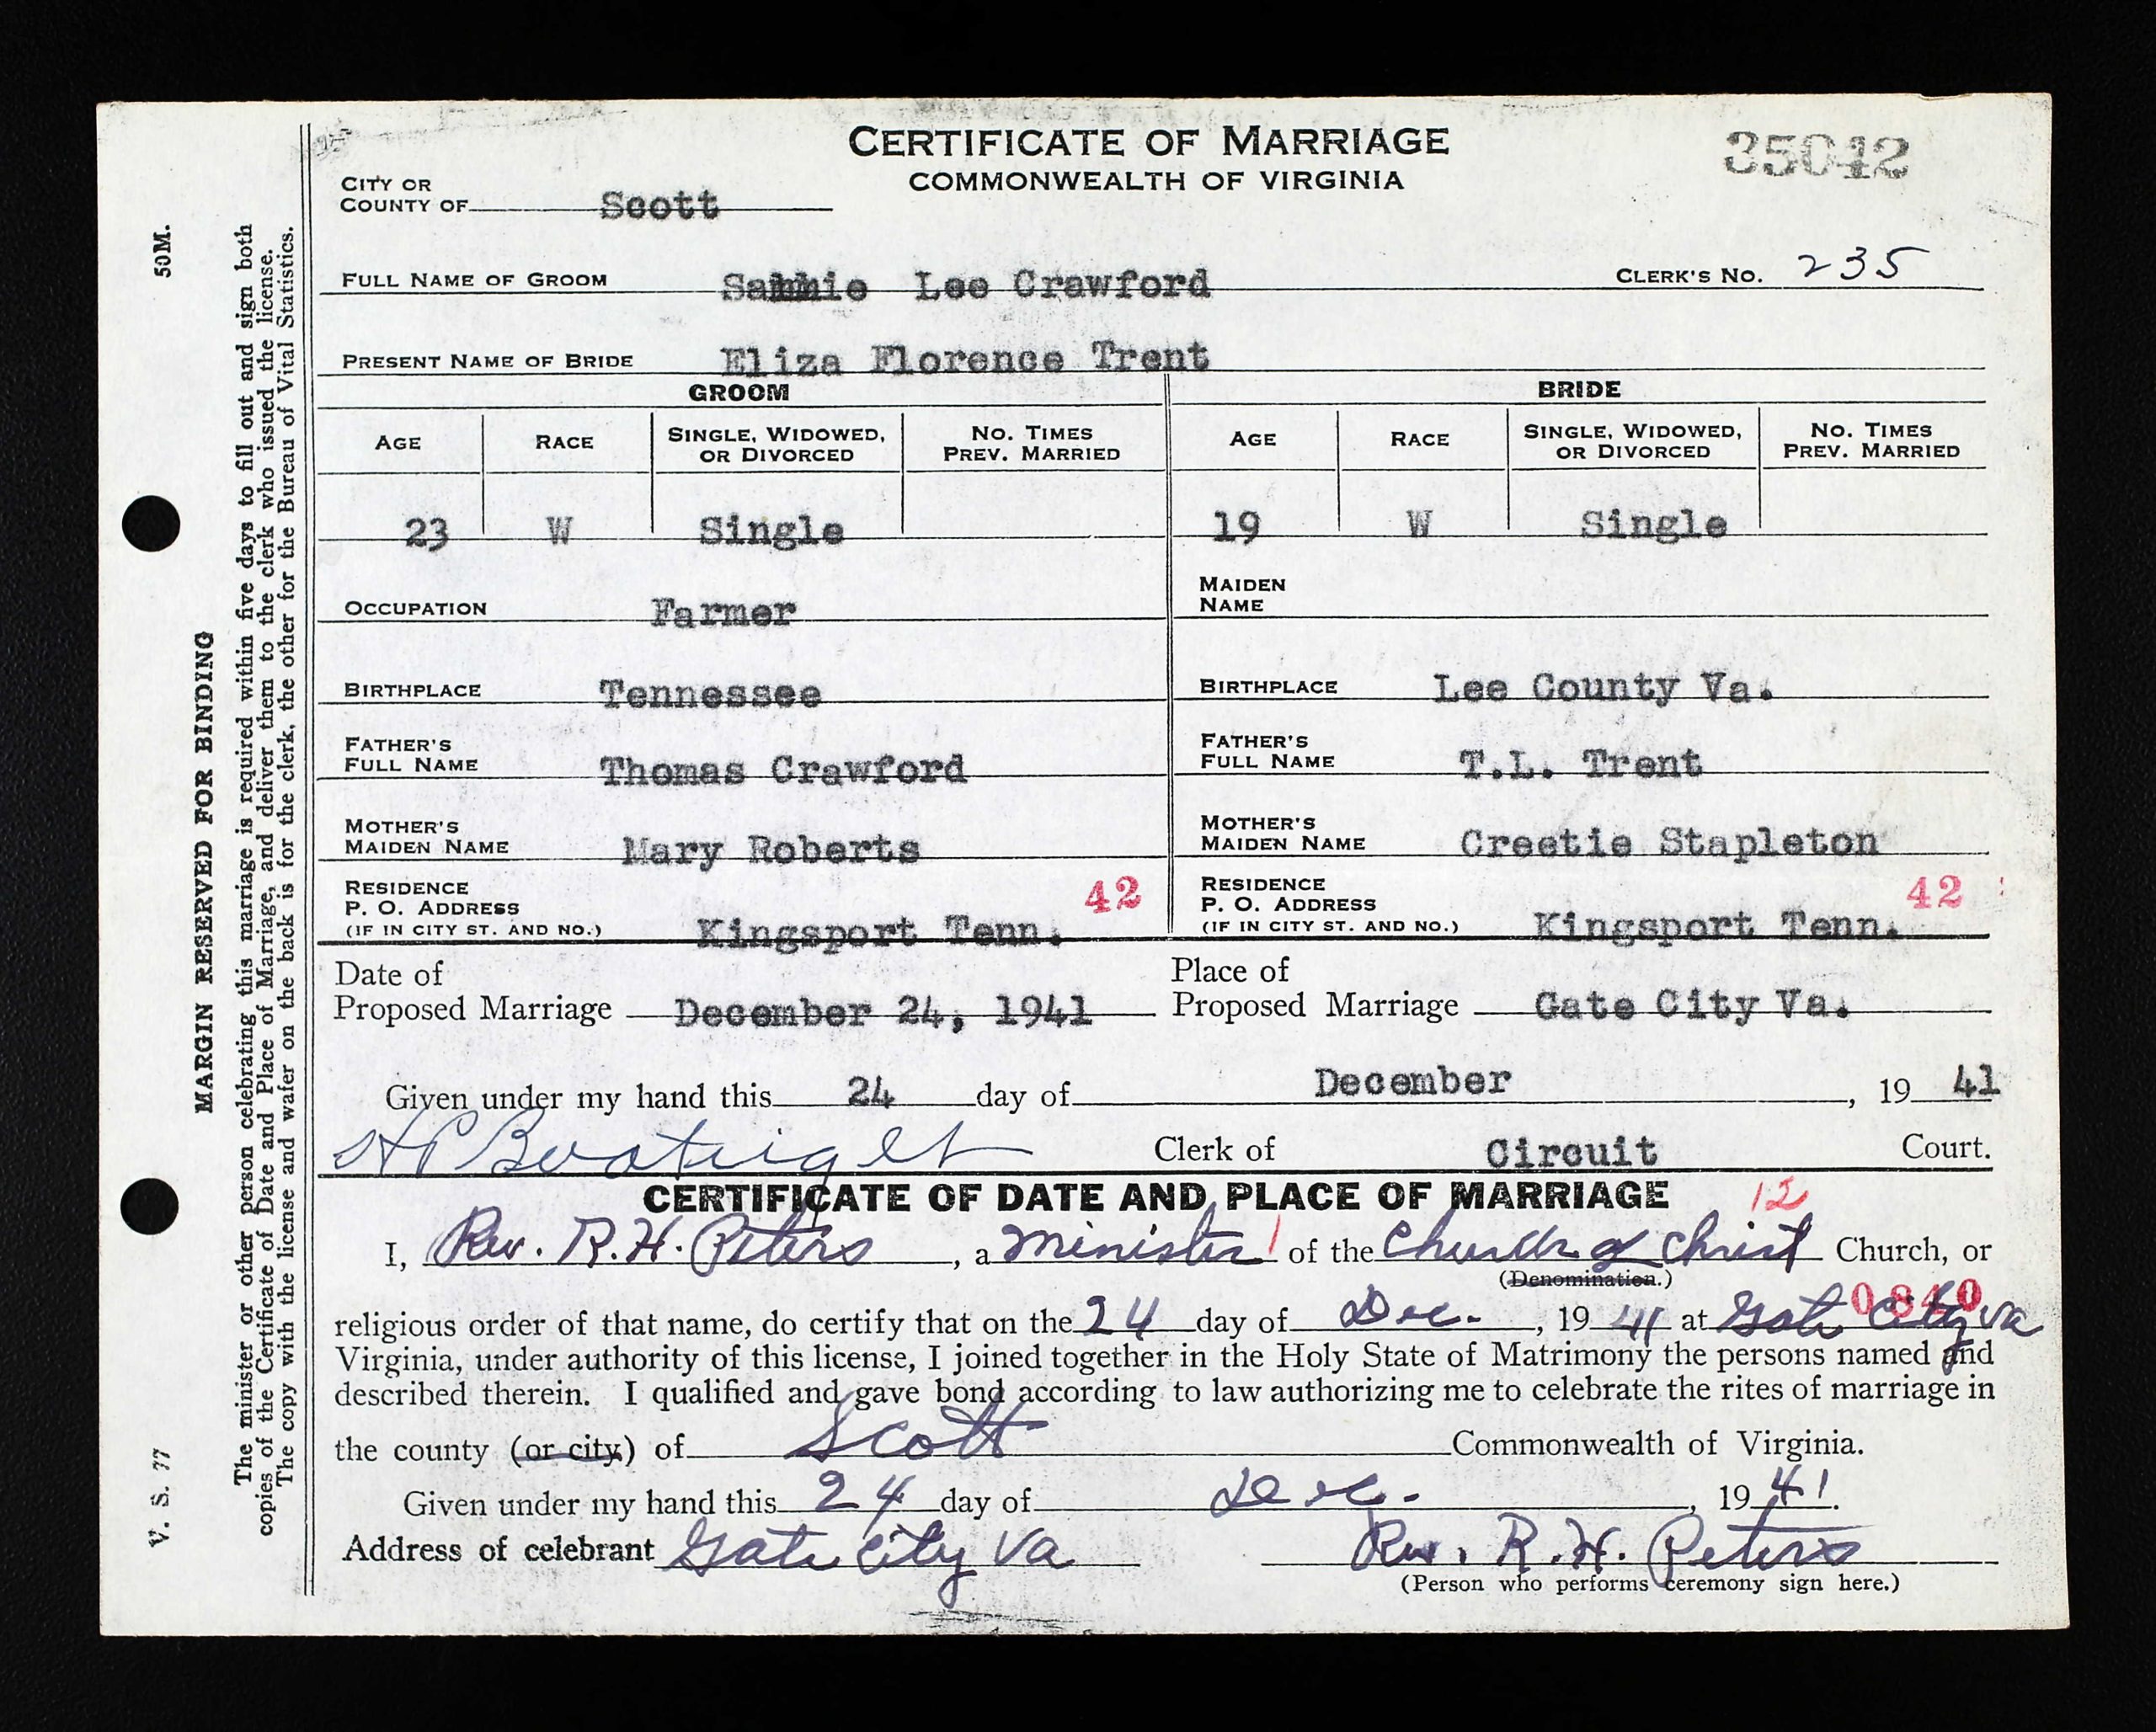 CERTIFICATE OF MARRIAGE
35042
COMMONWEALTH OF VIRGINIA
CITY OR
COUNTY OF Scott
FULL NAME OF GROOM Sammie Lee Crawford CLERK'S No. 235
PRESENT NAME OF BRIDE Eliza Florence Trent
GROOM BRIDE
AGE RACE SINGLE, WIDOWED, OR DIVORCED NO. TIMES PREV. MARRIED AGE RACE SINGLE, WIDOWED, OR DIVORCED NO. TIMES PREV. MARRIED
23 W Single 19 W Single
OCCUPATION Farmer MAIDEN NAME
BIRTHPLACE Tennessee BIRTHPLACE Lee County Va.
FATHER'S FULL NAME Thomas Crawford FATHER'S FULL NAME T.L. Trent
MOTHER'S MAIDEN NAME Mary Roberts MOTHER'S MAIDEN NAME Creetie Stapleton
RESIDENCE 42 RESIDENCE 42
P. O. ADDRESS P. O. ADDRESS
(IF IN CITY ST. AND NO.) Kingsport Tenn. (IF IN CITY ST. AND NO.) Kingsport Tenn.
Date of Place of
Proposed Marriage December 24, 1941 Proposed Marriage Gate City Va.
Given under my hand this 24 day of December, 19 41
H P Boatright Clerk of Circuit Court.
CERTIFICATE OF DATE AND PLACE OF MARRIAGE 12
I, Rev. R.H. Peters, a minister 1 of the Church of Christ Church, or
(Denomination.)
religious order of that name, do certify that on the 24 day of Dec., 19 41 at Gate City Va
Virginia, under authority of this license, I joined together in the Holy State of Matrimony the persons named and
described therein. I qualified and gave bond according to law authorizing me to celebrate the rites of marriage in
the county (or city) of Scott Commonwealth of Virginia.
Given under my hand this 24 day of Dec., 19 41.
Address of celebrant Gate City Va Rev. R.H. Peters
(Person who performs ceremony sign here.)
V. S. 77 50M.
MARGIN RESERVED FOR BINDING
The minister or other person celebrating this marriage is required within five days to fill out and sign both
copies of the Certificate of Date and Place of Marriage, and deliver them to the clerk who issued the license.
The copy with the license and wafer on the back is for the clerk, the other for the Bureau of Vital Statistics.